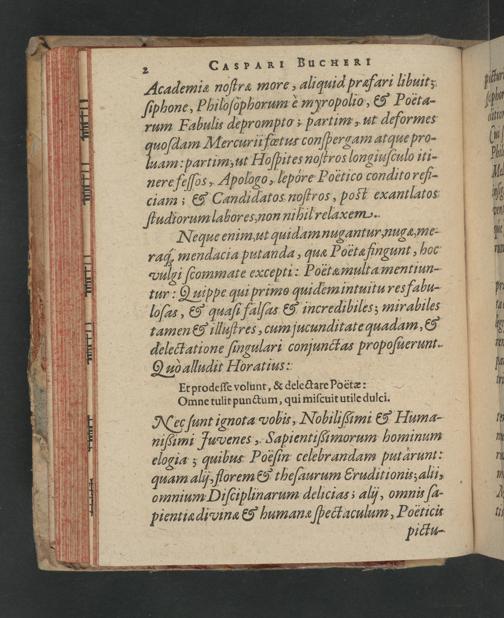 2 CASPARI BUCHERI
Academiæ nostræ more, aliquid præfari libuit;
siphone, Philosophorum è myropolio, & Poëta-
rum Fabulis deprompto; partim, ut deformes
quosdam Mercurii fœtus conspergam atque pro-
luam: partim, ut Hospites nostros longiusculo iti-
nere fessos, Apologo, lepóre Poëtico condito refi-
ciam; & Candidatos nostros, post exantlatos
studiorum labores, non nihil relaxem.
Neque enim, ut quidam nugantur, nugæ, me-
raq; mendacia putanda, quæ Poëtæ fingunt, hoc
vulgi scommate excepti: Poëtæ multa mentiun-
tur: Quippe qui primo quidem intuitu res fabu-
losas, & quasi falsas & incredibiles; mirabiles
tamen & illustres, cum jucunditate quadam, &
delectatione singulari conjunctas proposuerunt.
Quò alludit Horatius:
Et prodesse volunt, & delectare Poëtæ:
Omne tulit punctum, qui miscuit utile dulci.
Nec sunt ignota vobis, Nobilissimi & Huma-
nissimi Juvenes, Sapientissimorum hominum
elogia; quibus Poësin celebrandam putârunt:
quam alij, florem & thesaurum Eruditionis; alii,
omnium Disciplinarum delicias; alij, omnis sa-
pientiæ divinæ & humanæ spectaculum, Poëticis
pictu-